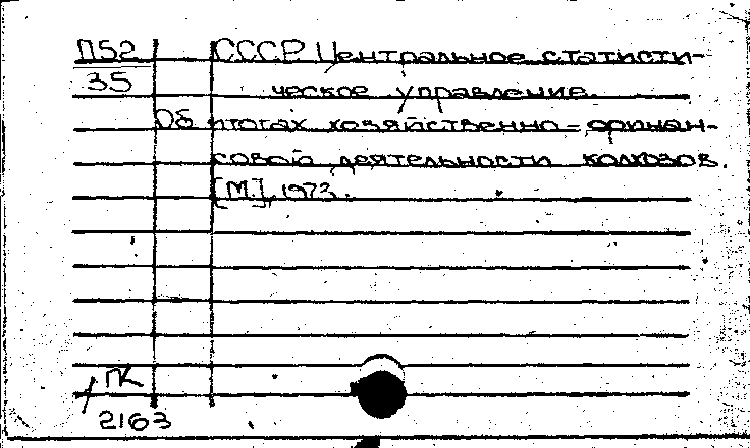 П52 СССР Центральное статисти-
35 ческое управление.
Об итогах хозяйственно-финан-
совой деятельности колхозов.
[М.], 1973.
ПК
2163